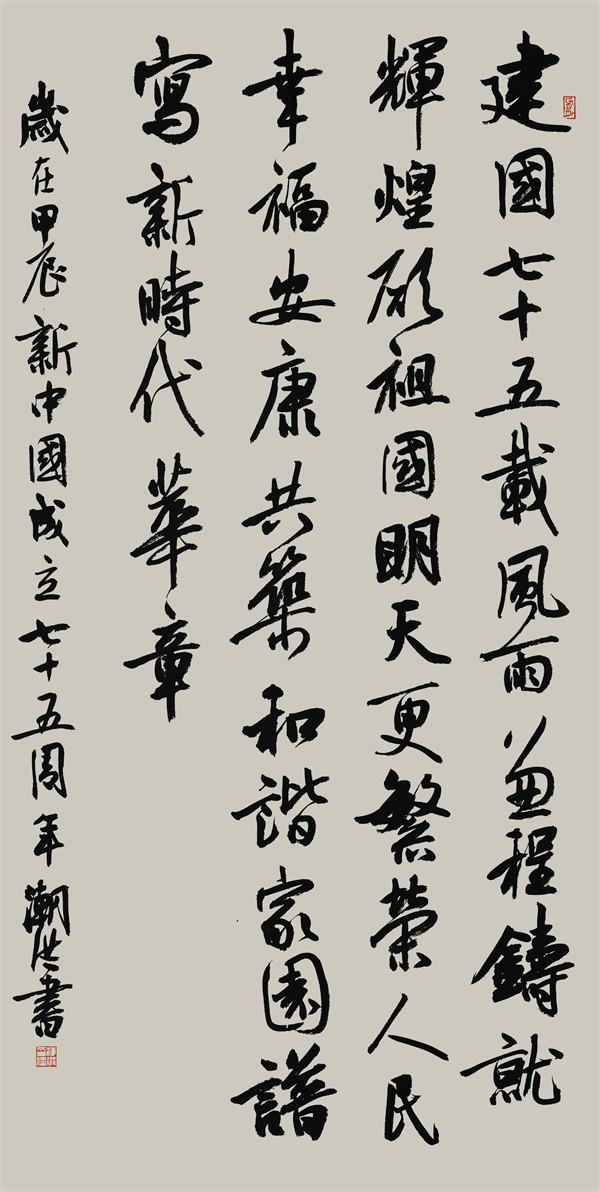 建國七十五載風雨兼程鑄就
輝煌願祖國明天更繁榮人民
幸福安康共築和諧家園譜
寫新時代華章
歲在甲辰新中國成立七十五周年潮洪書